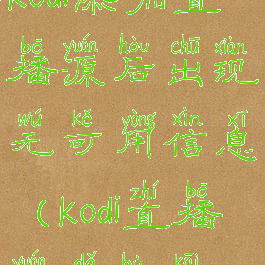 Kodi添加直
bō yuán hòu chū xiàn
播源后出现
wú kě yòng xìn xī
无可用信息
zhí bō
(Kodi直播
yuán